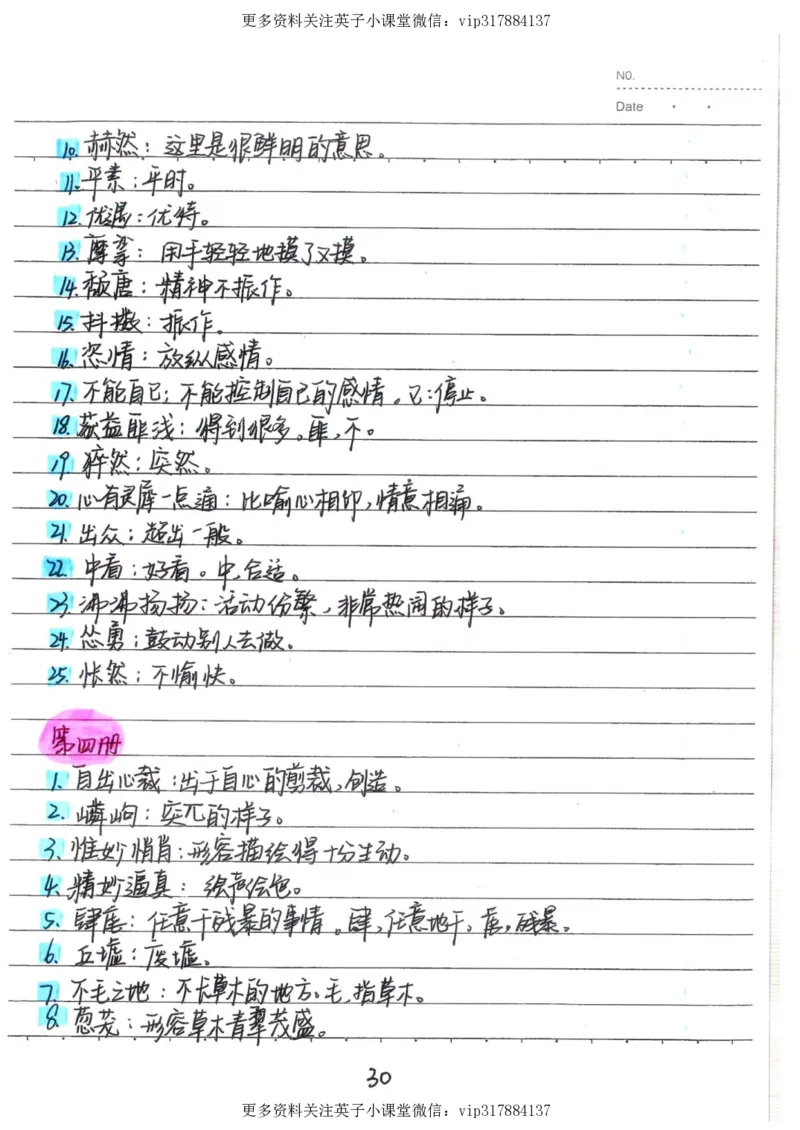 更多资料关注英子小课堂微信：vip317884137
NO.
Date
10. 赫然：这里是很鲜明的意思。
11. 平素：平时。
12. 优渥：优待。
13. 摩挲：用手轻轻地摸了又摸。
14. 颓唐：精神不振作。
15. 抖擞：振作。
16. 恣情：放纵感情。
17. 不能自已：不能控制自己的感情。已：停止。
18. 获益匪浅：得到很多。匪，不。
19. 猝然：突然。
20. 心有灵犀一点通：比喻心相印，情意相通。
21. 出众：超出一般。
22. 中看：好看。中，合适。
23. 沸沸扬扬：活动份繁，非常热闹的样子。
24. 怂勇：鼓动别人去做。
25. 怅然：不愉快。
第四册
1. 自出心裁：出于自心的剪裁，创造。
2. 嶙峋：突兀的样子。
3. 惟妙惟肖：形容描绘得十分生动。
4. 精妙逼真：绘声绘色。
5. 肆虐：任意干残暴的事情。肆，任意地干，虐，残暴。
6. 丘墟：废墟。
7. 不毛之地：不长草木的地方。毛，指草木。
8. 葱茏：形容草木青翠茂盛。
30
更多资料关注英子小课堂微信：vip317884137